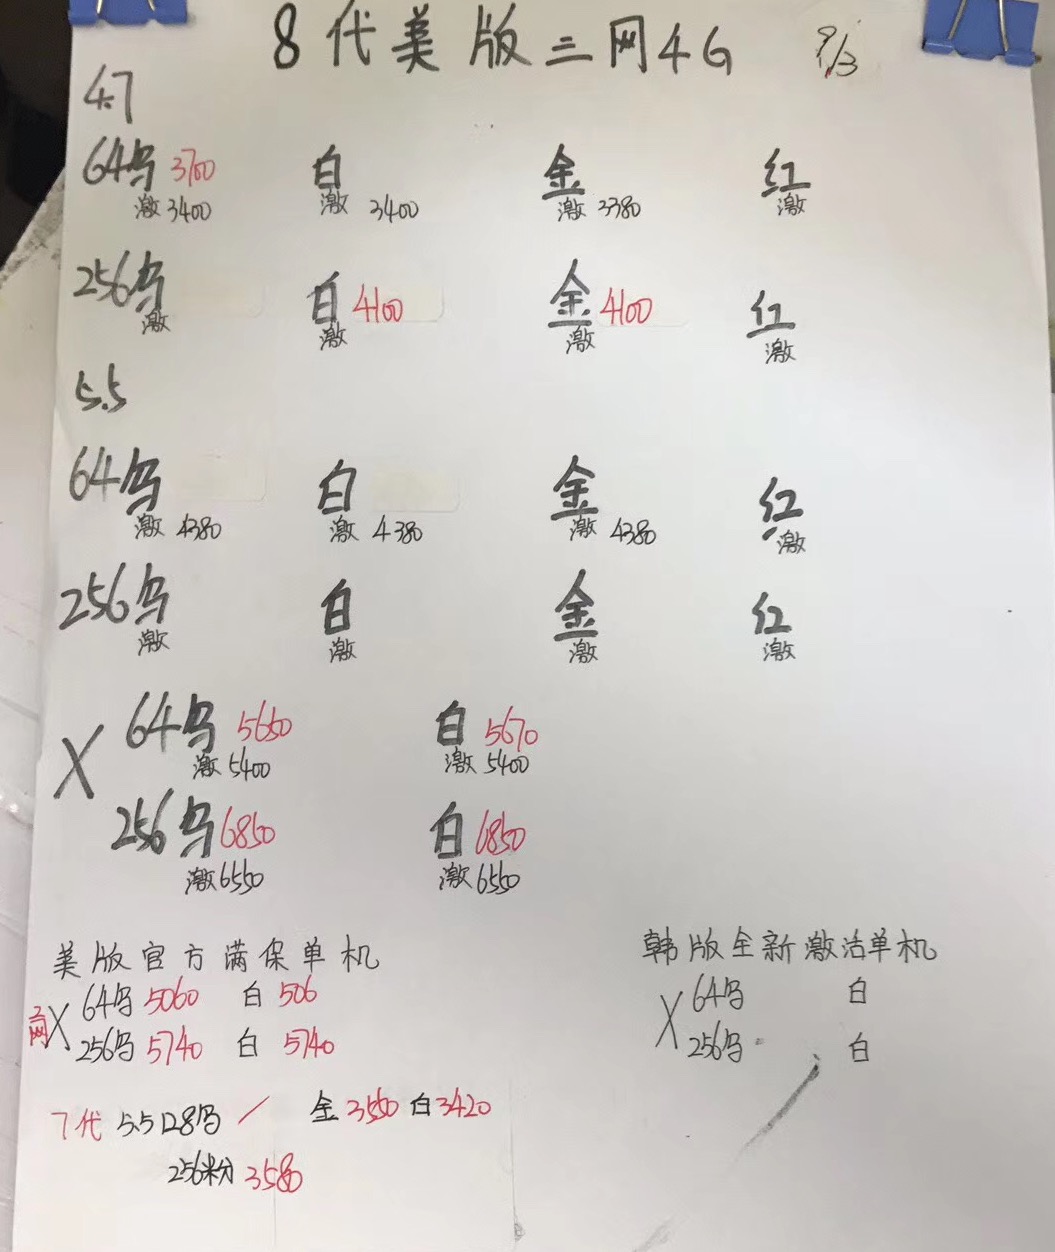 8代美版三网4G 9/3
4.7
64乌 3700 白 金 红
激 3400 激 3400 激 3380 激
256乌 白 4100 金 4100 红
激 激 激 激
5.5
64乌 白 金 红
激 4380 激 4380 激 4380 激
256乌 白 金 红
激 激 激 激
X 64乌 5650 白 5670
激 5400 激 5400
256乌 6850 白 6850
激 6550 激 6550
美版官方满保单机
三网 X 64乌 5060 白 506
256乌 5740 白 5740
韩版全新激活单机
X 64乌 白
256乌 白
7代 5.5 128乌 / 金 3550 白 3420
256粉 3580